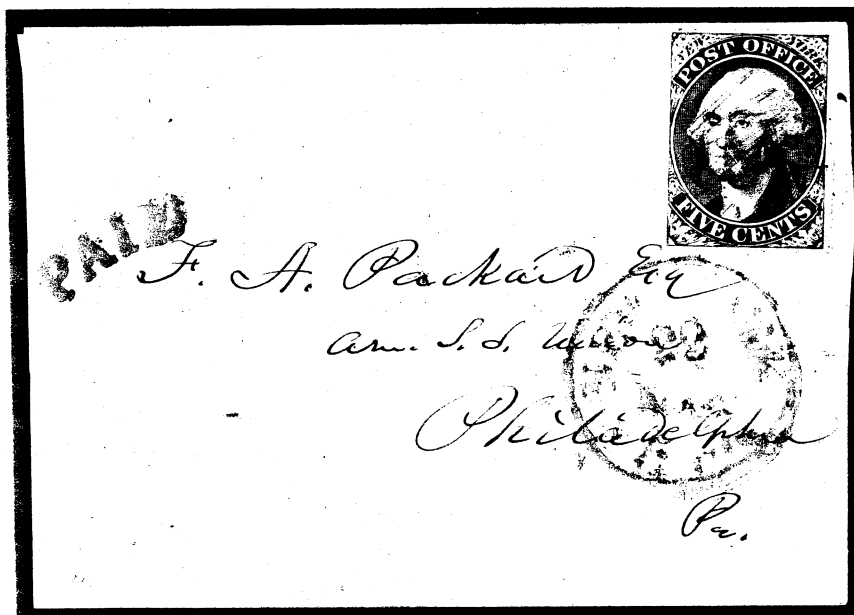 NEW YORK
POST OFFICE
FIVE CENTS
PAID
F. A. Packard Esq
Am. S. S. Union
28
Philadelphia
Pa.